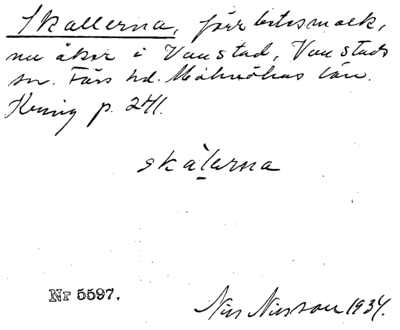 Skallerna, förr betesmark,
nu åker i Vanstad, Vanstads
sn. Färs hd. Malmöhus län.
Kenig p. 241.
skàlerna
Nr 5597.
Nils Nilsson 1934.